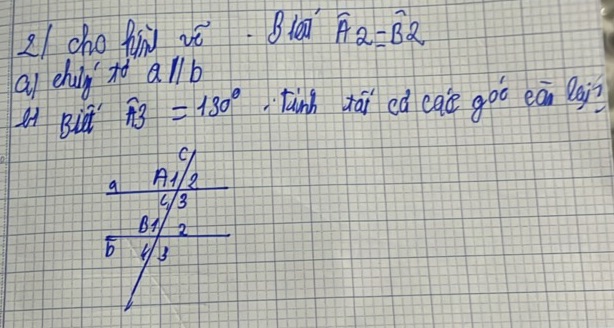 2/ cho hình vẽ. Biết Â2 = B̂2
a) chứng tỏ a // b
b) Biết Â3 = 130°. Tính tất cả các góc còn lại?
c
a A 1 2
4 3
B 1 2
b 4 3